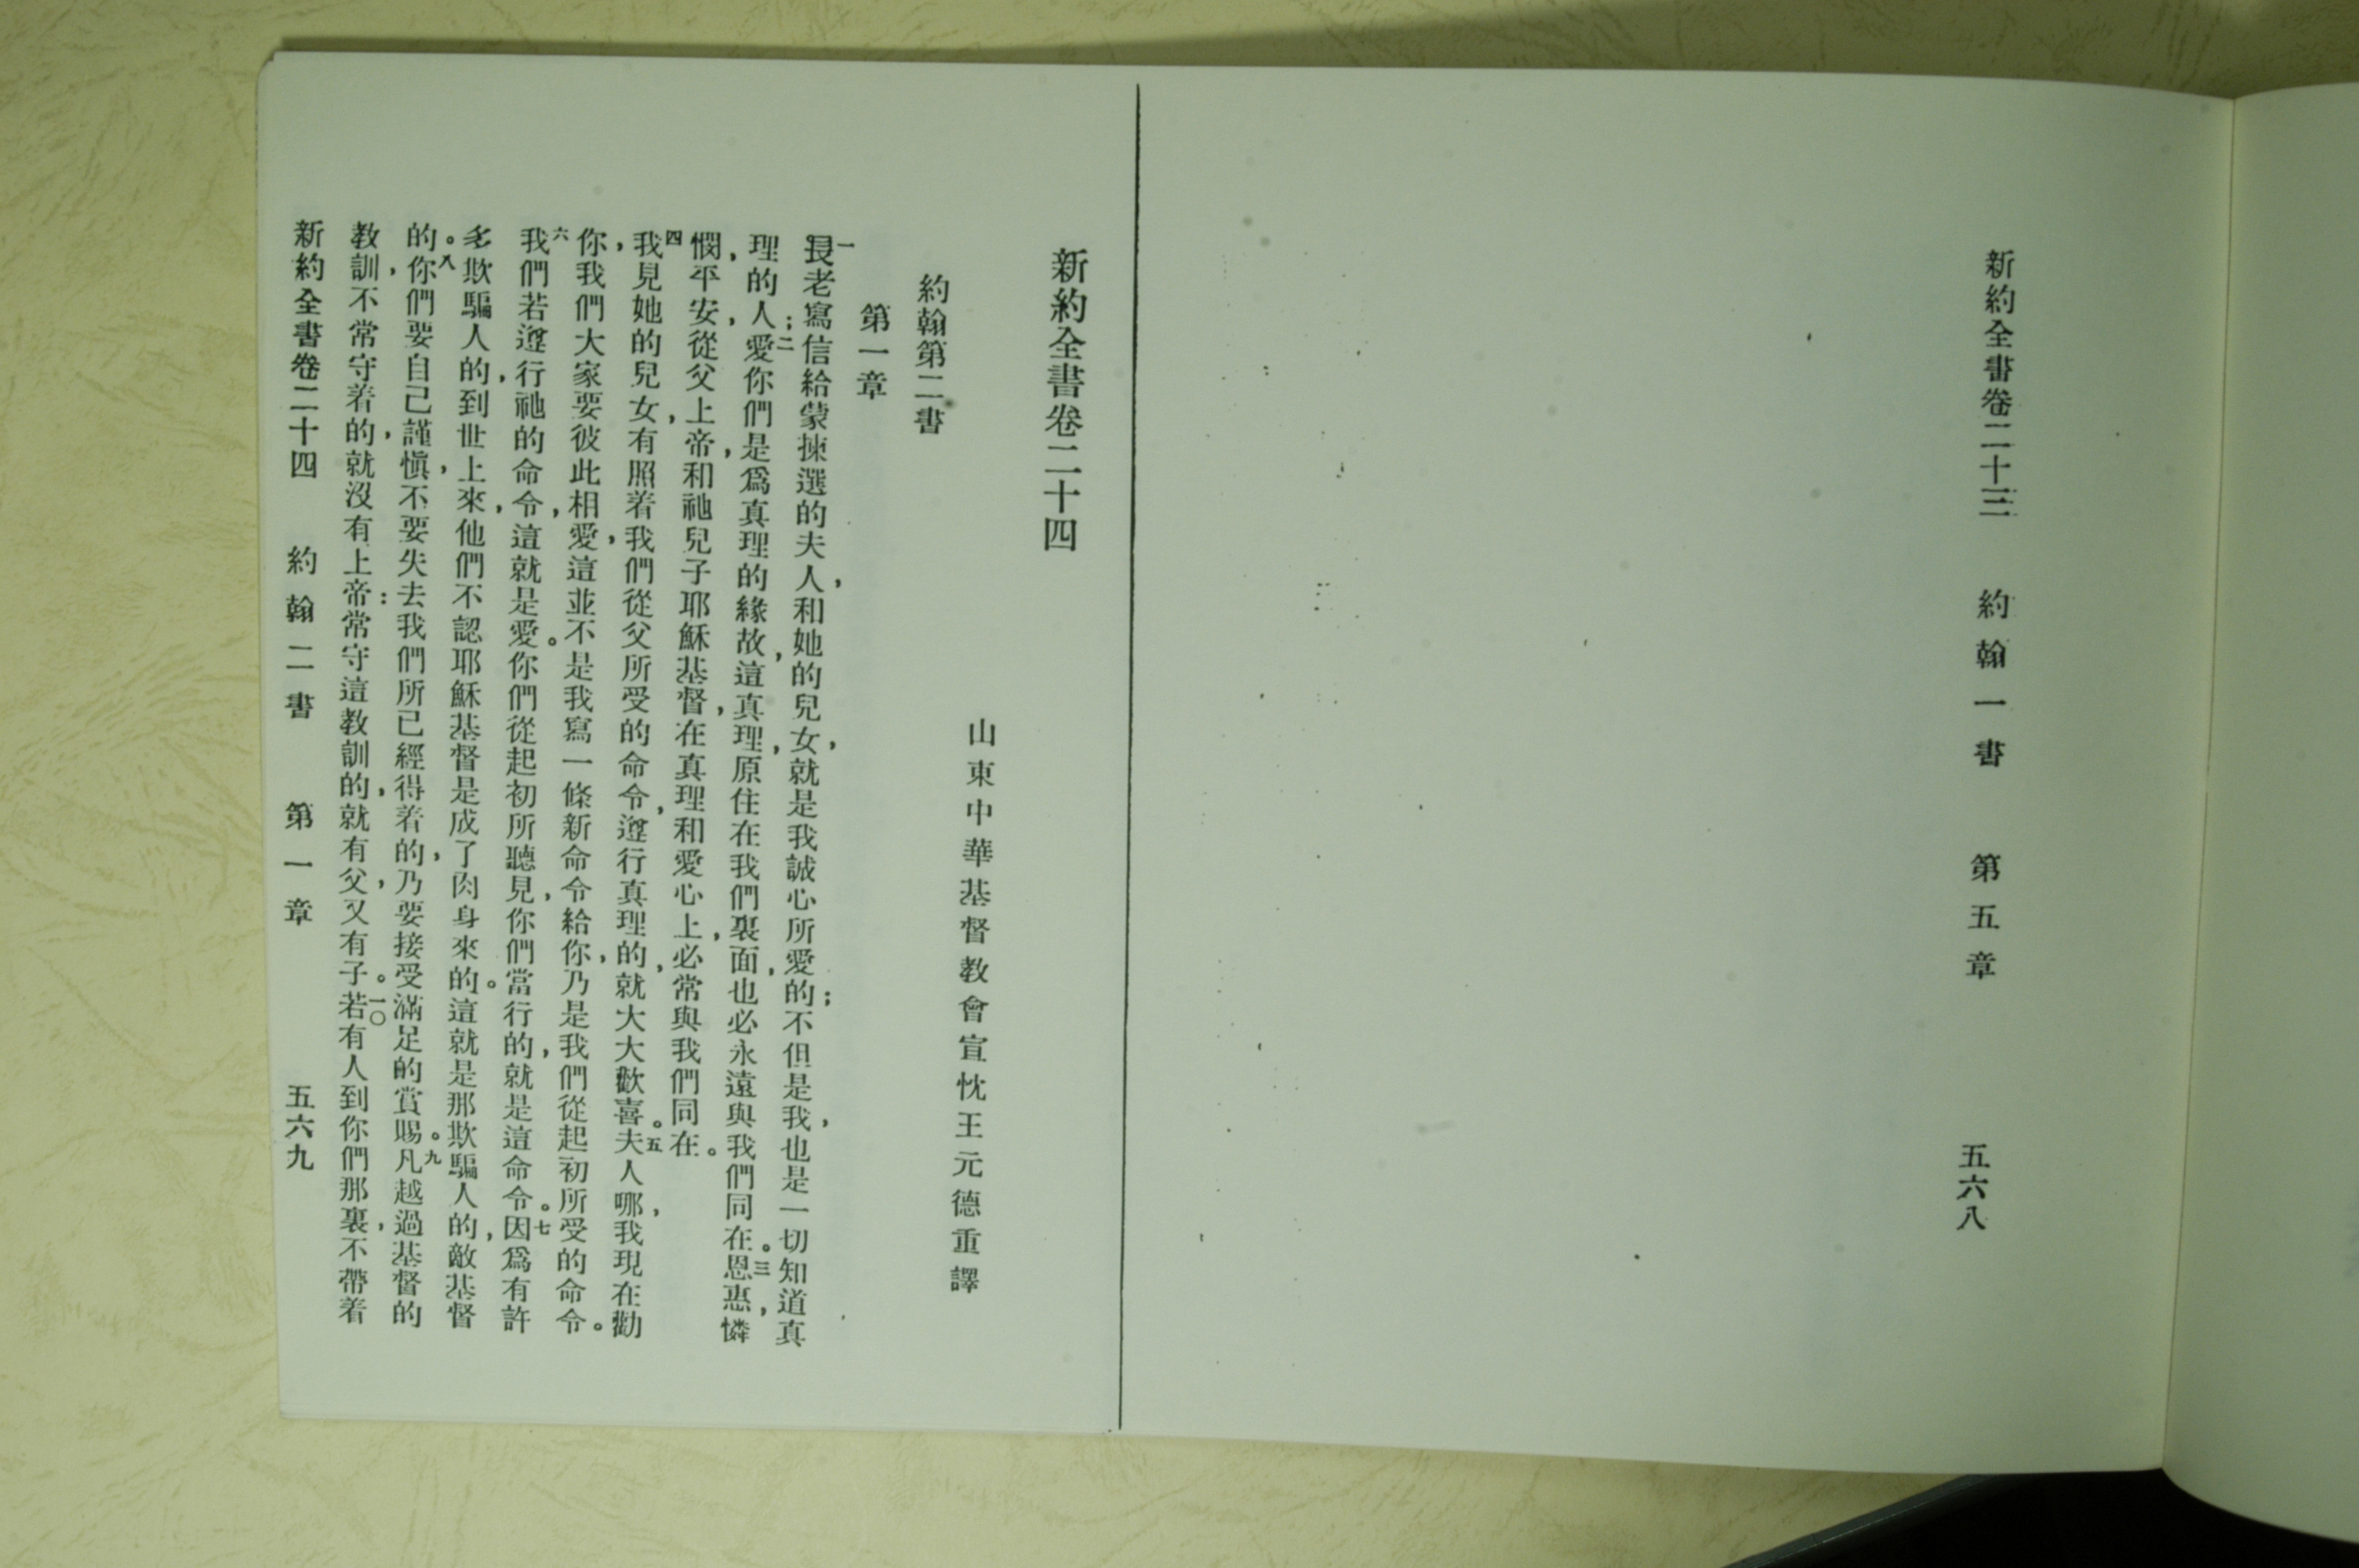 新約全書卷二十三　約翰一書　第五章　五六八
新約全書卷二十四
山東中華基督教會宣忱王元德重譯
約翰第二書
第一章
一長老寫信給蒙揀選的夫人，和她的兒女，就是我誠心所愛的；不但是我，也是一切知道真
理的人；二愛你們是爲真理的緣故，這真理，原住在我們裏面，也必永遠與我們同在。三恩惠，憐
憫，平安，從父上帝，和祂兒子耶穌基督，在真理和愛心上，必常與我們同在。
四我見她的兒女，有照着我們從父所受的命令，遵行真理的，就大大歡喜。五夫人哪，我現在勸
你，我們大家要彼此相愛，這並不是我寫一條新命令給你，乃是我們從起初所受的命令。
六我們若遵行祂的命令，這就是愛。你們從起初所聽見，你們當行的，就是這命令。七因爲有許
多欺騙人的，到世上來，他們不認耶穌基督是成了肉身來的。這就是那欺騙人的，敵基督
的。八你們要自己謹慎，不要失去我們所已經得着的，乃要接受滿足的賞賜。九凡越過基督的
教訓，不常守着的，就沒有上帝：常守這教訓的，就有父，又有子。一〇若有人到你們那裏，不帶着
新約全書卷二十四　約翰二書　第一章　五六九